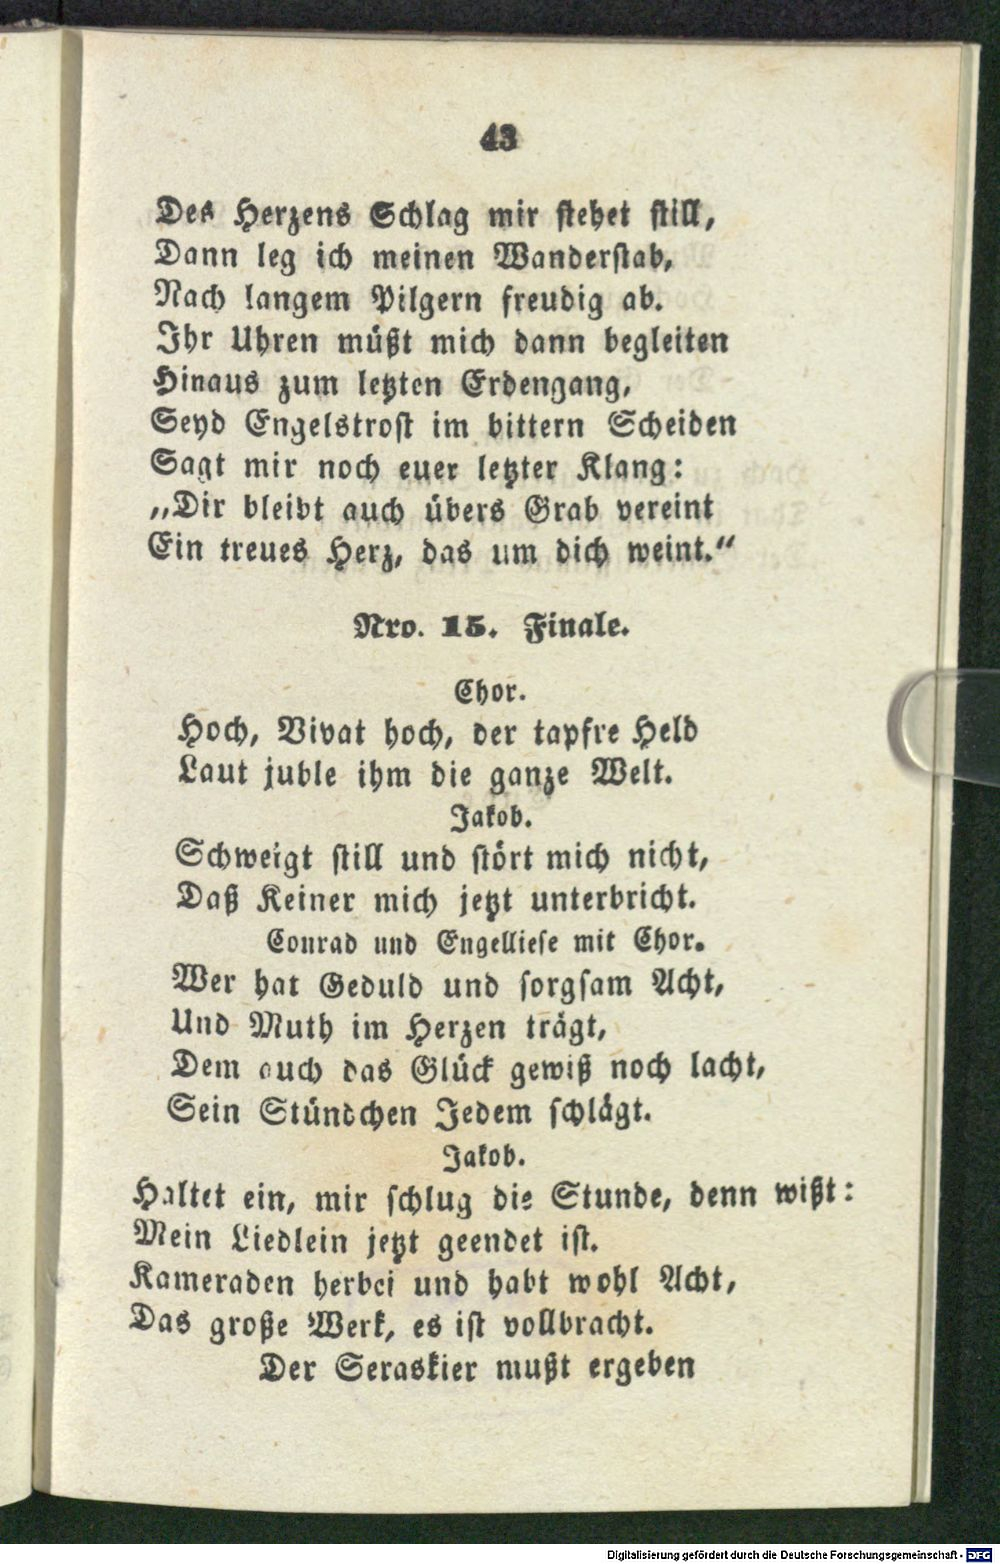 43
Des Herzens Schlag mir stehet still,
Dann leg ich meinen Wanderstab,
Nach langem Pilgern freudig ab.
Ihr Uhren müßt mich dann begleiten
Hinaus zum letzten Erdengang,
Seyd Engelstrost im bittern Scheiden
Sagt mir noch euer letzter Klang:
„Dir bleibt auch übers Grab vereint
Ein treues Herz, das um dich weint.“
Nro. 15. Finale.
Chor.
Hoch, Vivat hoch, der tapfre Held
Laut juble ihm die ganze Welt.
Jakob.
Schweigt still und stört mich nicht,
Daß Keiner mich jetzt unterbricht.
Conrad und Engelliese mit Chor.
Wer hat Geduld und sorgsam Acht,
Und Muth im Herzen trägt,
Dem auch das Glück gewiß noch lacht,
Sein Stündchen Jedem schlägt.
Jakob.
Haltet ein, mir schlug die Stunde, denn wißt:
Mein Liedlein jetzt geendet ist.
Kameraden herbei und habt wohl Acht,
Das große Werk, es ist vollbracht.
Der Seraskier mußt ergeben
Digitalisierung gefördert durch die Deutsche Forschungsgemeinschaft - DFG